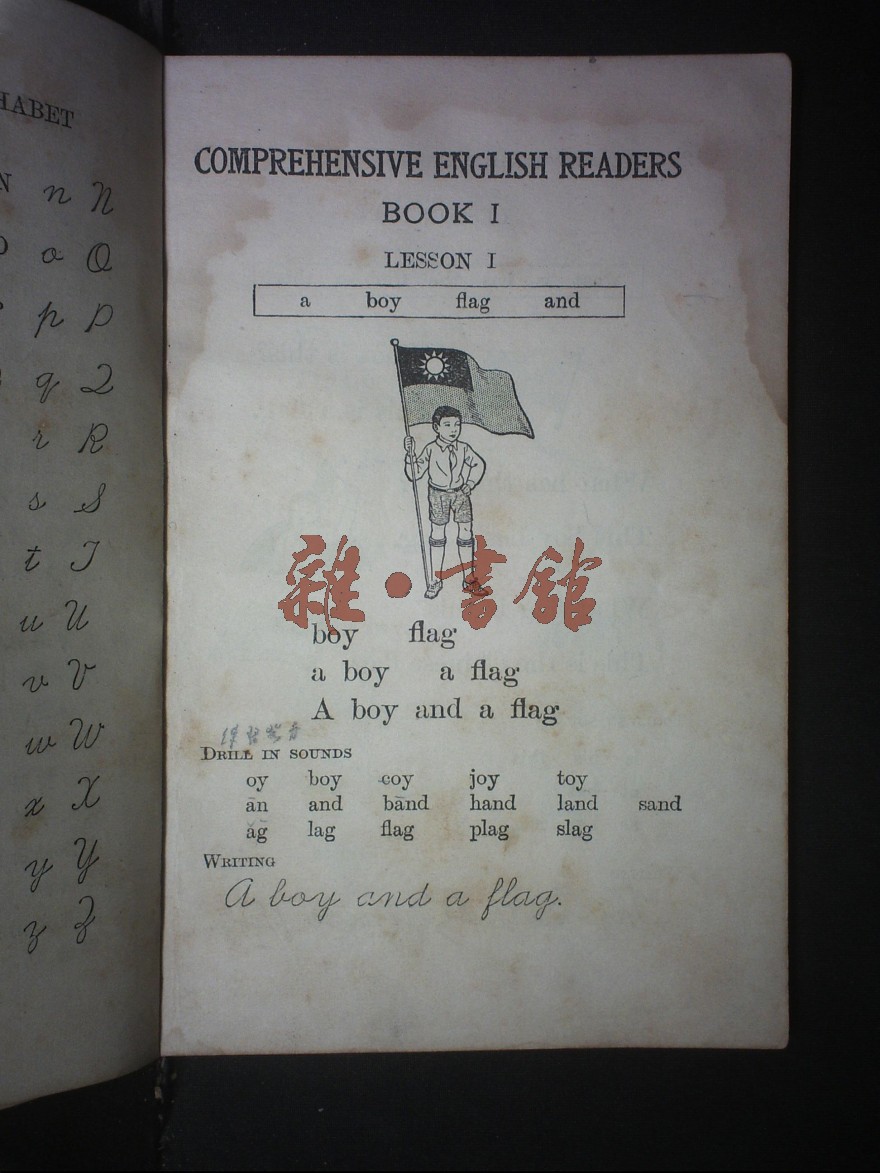 HABET
N n N
o O
p P
q Q
r R
s S
t T
u U
v V
w W
x X
y Y
z Z
COMPREHENSIVE ENGLISH READERS
BOOK I
LESSON I
a boy flag and
雜·書館
boy flag
a boy a flag
A boy and a flag
DRILL IN SOUNDS
oy boy coy joy toy
ān and bānd hand land sand
ăg lag flag plag slag
WRITING
A boy and a flag.